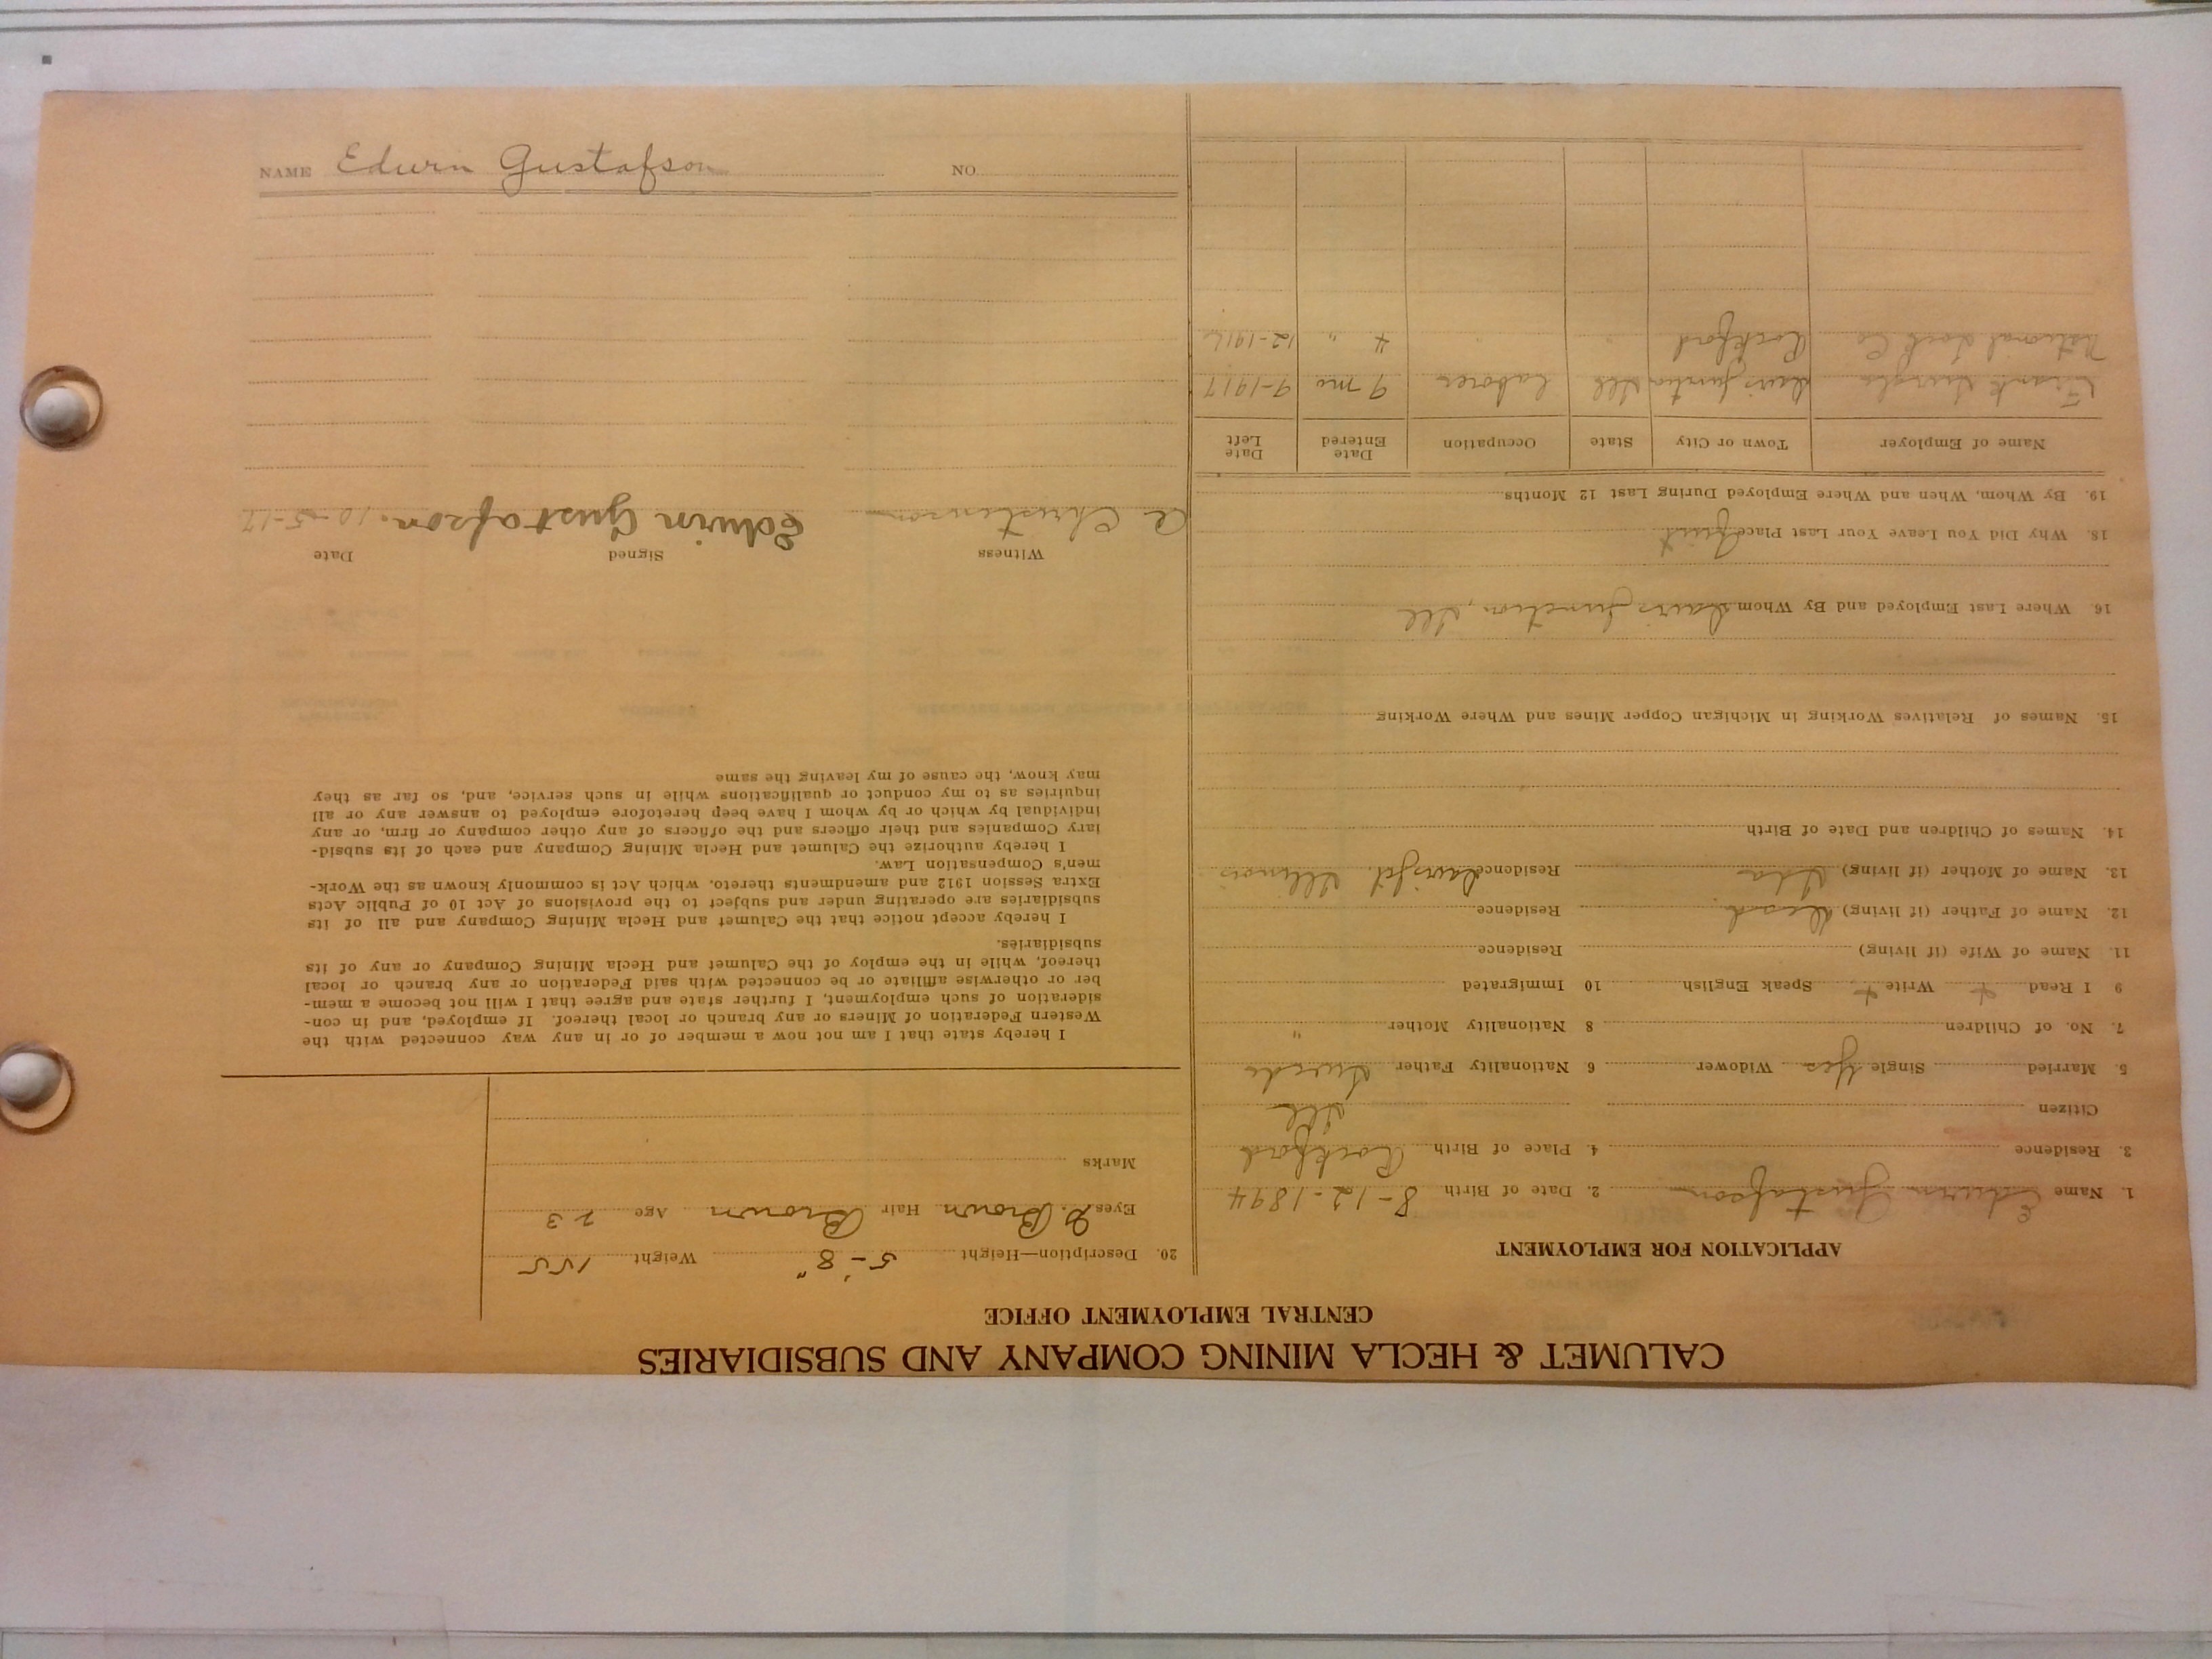 CALUMET & HECLA MINING COMPANY AND SUBSIDIARIES
CENTRAL EMPLOYMENT OFFICE
APPLICATION FOR EMPLOYMENT
1. Name Edwin Gustafson 2. Date of Birth 8-12-1894
3. Residence 4. Place of Birth Rockford
Citizen Ill
5. Married Single Yes Widower 6 Nationality Father Swede
7. No. of Children 8 Nationality Mother "
9 I Read + Write + Speak English 10 Immigrated
11. Name of Wife (if living) Residence
12. Name of Father (if living) Dead Residence
13. Name of Mother (if living) Ida Residence Davis Jct. Illinois
14. Names of Children and Date of Birth
15. Names of Relatives Working in Michigan Copper Mines and Where Working
16. Where Last Employed and By Whom Davis Junction, Ill
18. Why Did You Leave Your Last Place Quit
19. By Whom, When and Where Employed During Last 12 Months
Name of Employer Town or City State Occupation Date Entered Date Left
Frank Davis Junction Ill laborer 9 mo 9-1917
National Lock Co Rockford " " 4 " 12-1916
20. Description—Height 5'-8" Weight 155
Eyes D. Brown Hair Brown Age 23
Marks
I hereby state that I am not now a member of or in any way connected with the
Western Federation of Miners or any branch or local thereof. If employed, and in con-
sideration of such employment, I further state and agree that I will not become a mem-
ber or otherwise affiliate or be connected with said Federation or any branch or local
thereof, while in the employ of the Calumet and Hecla Mining Company or any of its
subsidiaries.
I hereby accept notice that the Calumet and Hecla Mining Company and all of its
subsidiaries are operating under and subject to the provisions of Act 10 of Public Acts
Extra Session 1912 and amendments thereto, which Act is commonly known as the Work-
men's Compensation Law.
I hereby authorize the Calumet and Hecla Mining Company and each of its subsid-
iary Companies and their officers and the officers of any other company or firm, or any
individual by which or by whom I have been heretofore employed to answer any or all
inquiries as to my conduct or qualifications while in such service, and, so far as they
may know, the cause of my leaving the same
Witness Signed Date
A Christenson Edwin Gustafson. 10-5-17
NAME Edwin Gustafson NO